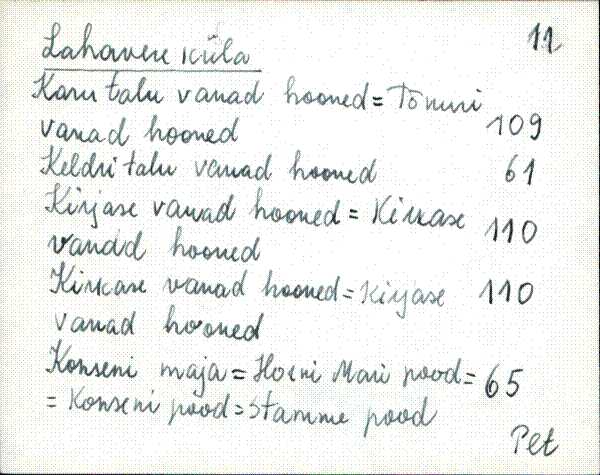 11
Lahavere küla
Karu talu vanad hooned = Tõnuri
vanad hooned 109
Keldri talu vanad hooned 61
Kirjase vanad hooned = Kirikase 110
vanad hooned
Kirikase vanad hooned = Kirjase 110
vanad hooned
Konseni maja = Hoeni Mari pood = 65
= Konseni pood = Stamme pood
Plt